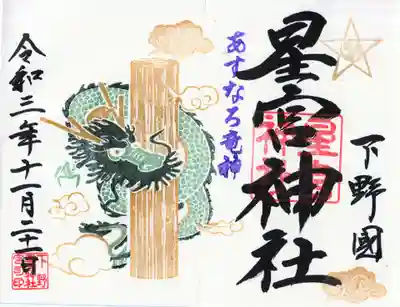 下野國
星宮神社
星宮神社
あすなろ竜神
令和三年十一月二十一日